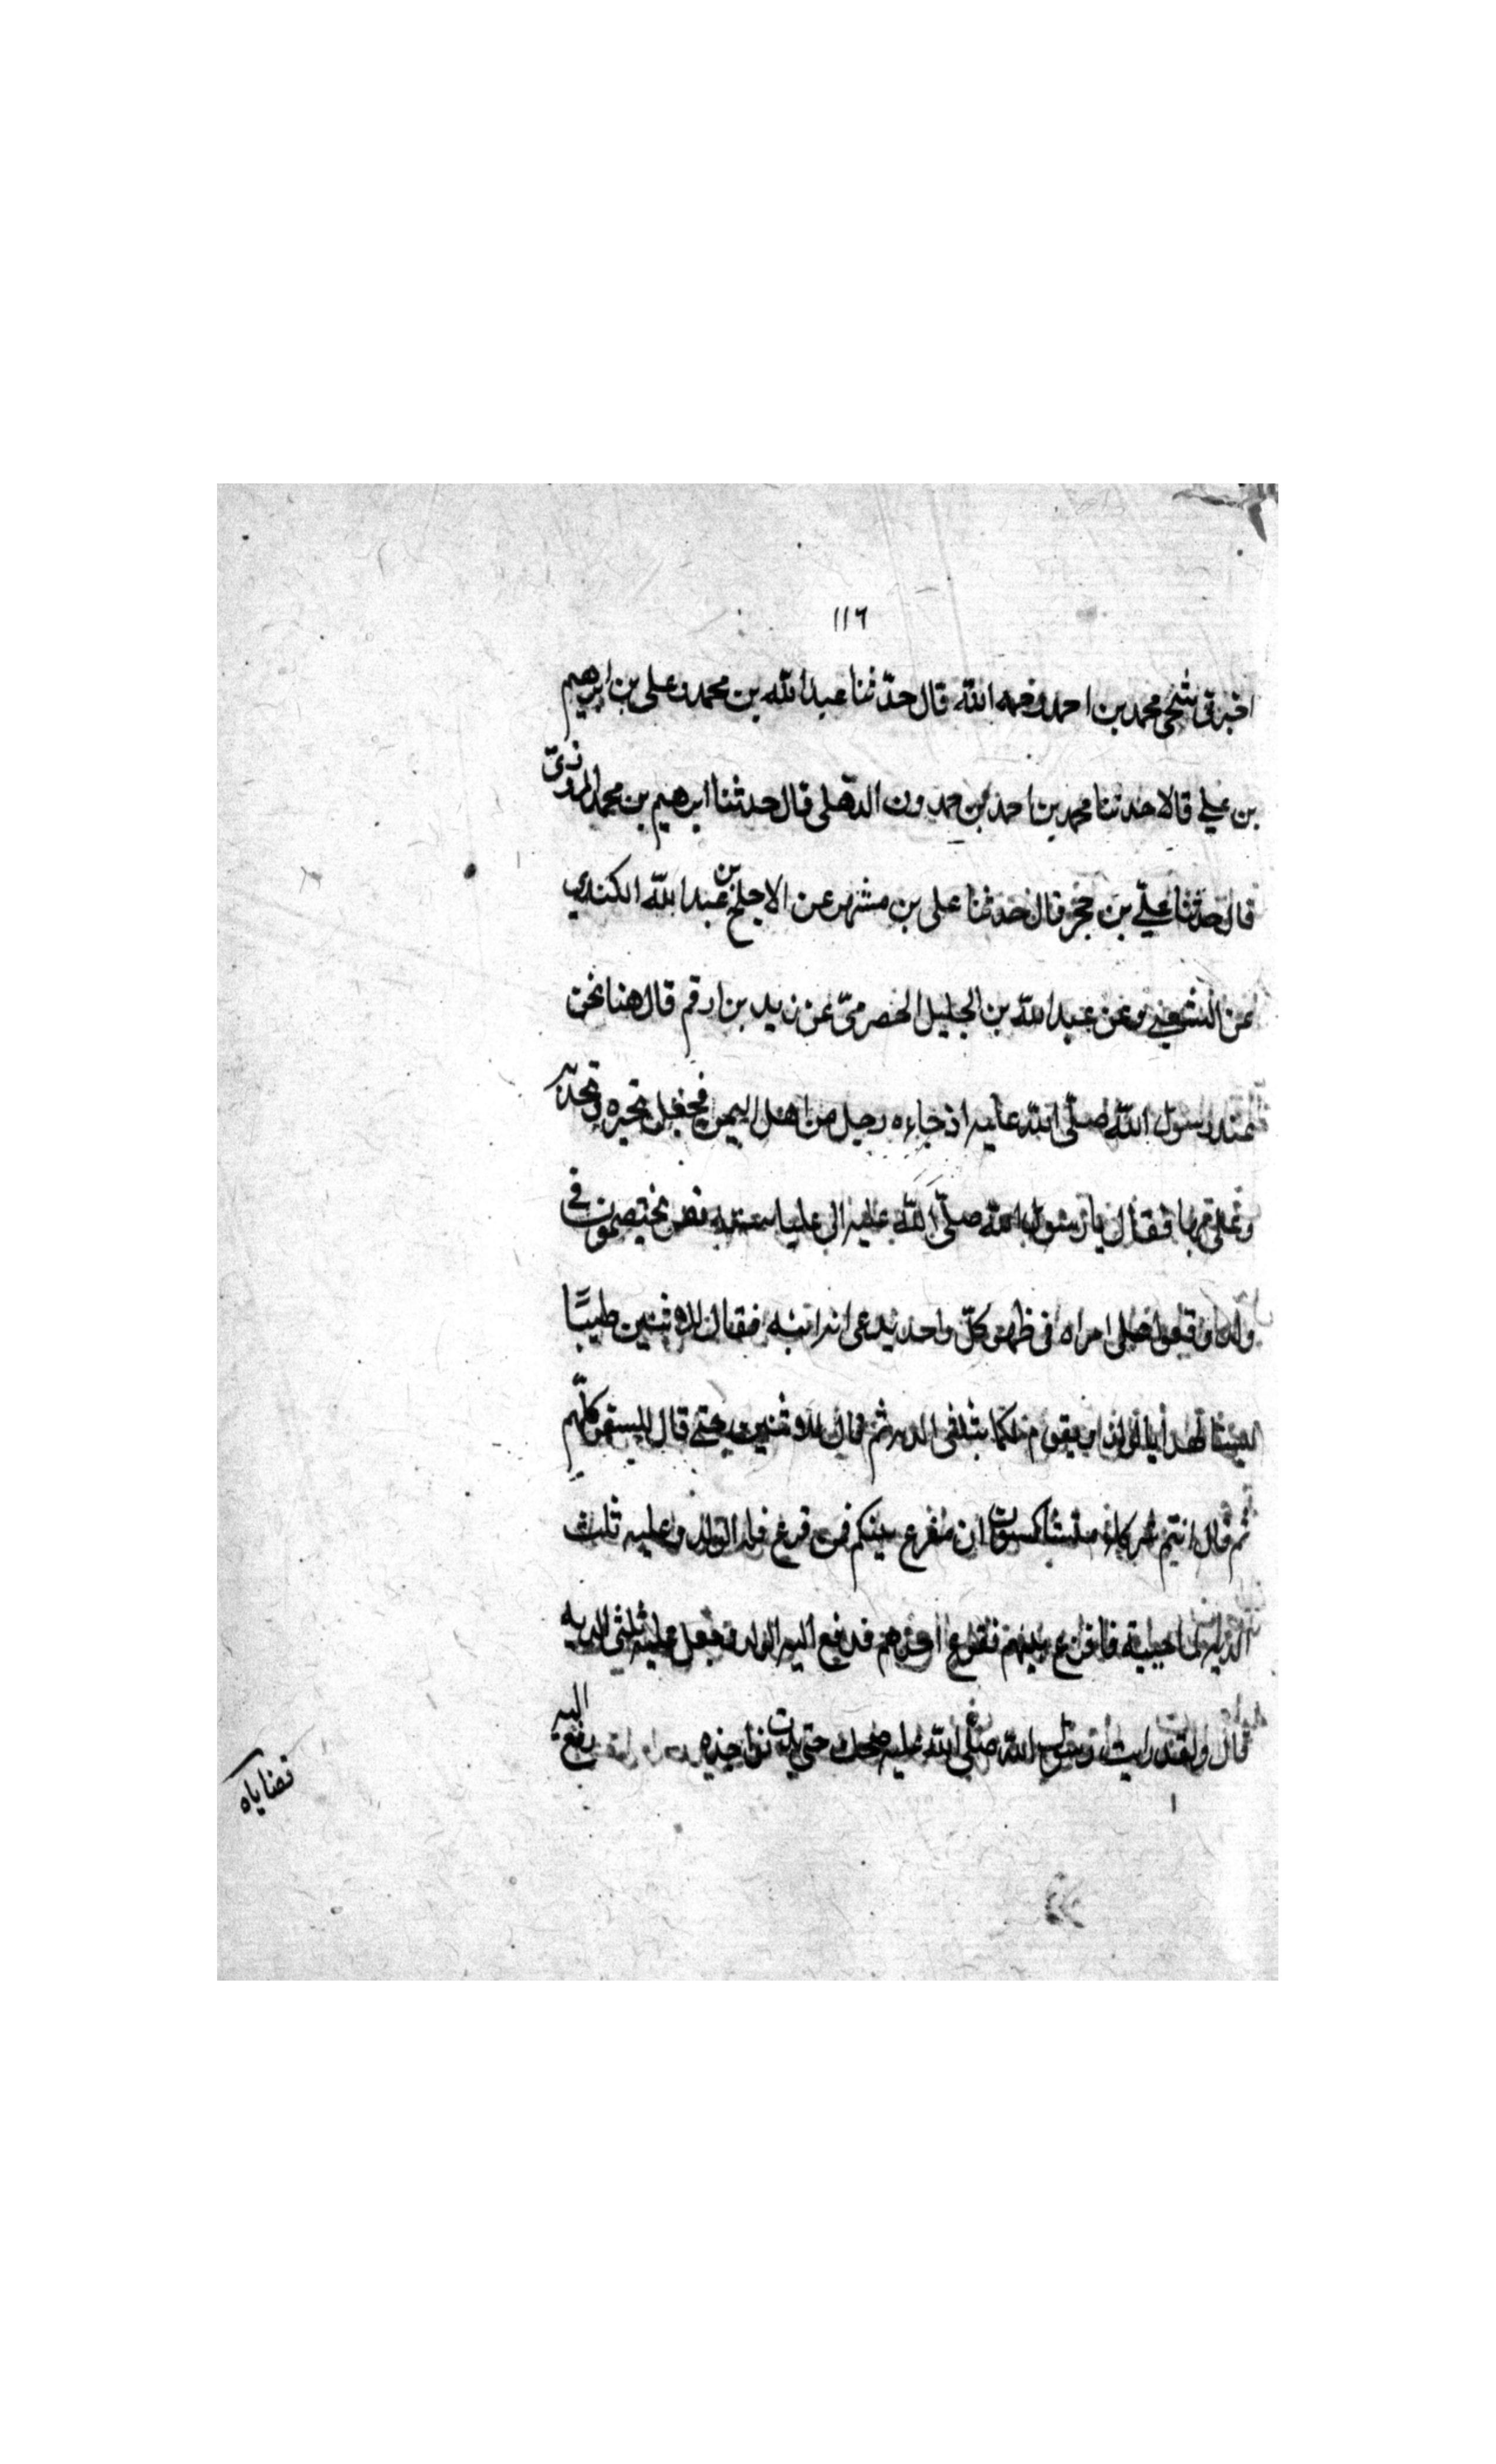 ١١٦
اخبرنى شيخى محمد بن احمد رحمه الله قال حدّثنا عبد الله بن محمد وعلى بن ابرهيم
بن على قالا حدثنا محمد بن احمد بن حمدون الدهلى قال حدثنا ابرهيم بن محمد المروزىّ
قال حدّثنا علىّ بن حجر قال حدثنا على بن مشهر عن الاجلح بن عبد الله الكندى
عن الشعبى وعن عبد الله بن الجليل الحضرمىّ عن زيد بن ارقم قال هنا نحن
عند رسول الله صلّى الله عليه اذ جاءه رجل من اهل اليمن فجعل يخبره وتحدّثه
فقال يا رسول الله صلّى الله عليه اتى عليا نفر يختصمون فى
ولد وقعوا على امراه فى طهر كلّ واحد يدعى انه ابنه فقال للاثنين طيبًا
ثم قال للاثنين حتى قال كلّهم
ثم قال انتم شركاء متشاكسون ان مقرع بينكم فمن قرع فله الولد وعليه ثلث
فاقرع بينهم فقرع احدهم فدفع اليه الولد وجعل عليه ثلثى الديه
قال ولقد رايت رسول الله صلّى الله عليه ضحك حتى بدت نواجذه رفع اليه
قضاياه